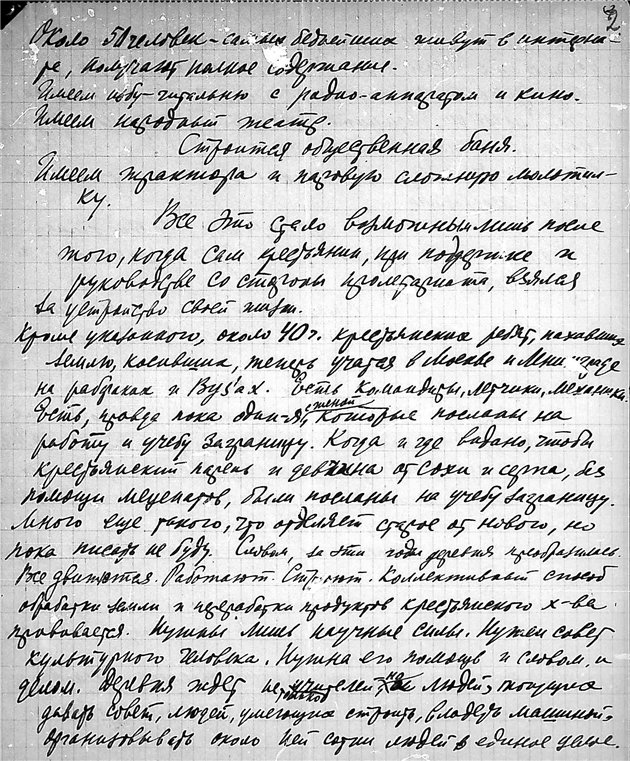 2
Около 50 человек - самых беднейших живут в интерна-
те, получают полное содержание.
Имеем избу-читальню с радио-аппаратом и кино.
Имеем народный театр.
Строится общественная баня.
Имеем трактора и паровую сложную молотил-
ку.
Все это стало возможным лишь после
того, когда сам крестьянин, при поддержке и
руководстве со стороны пролетариата, взялся
за устройство своей жизни.
Кроме указанного, около 40 ч. крестьянских ребят, пахавших
землю, косивших, теперь учатся в Москве и Ленинграде
на рабфаках и Вуз'ах. Есть командиры, летчики, механики.
Есть, правда пока один-я, с женой которые посланы на
работу и учебу заграницу. Когда и где видано, чтобы
крестьянский парень и девчина от сохи и серпа, без
помощи меценатов, были посланы на учебу заграницу.
Много еще такого, что отделяет старое от нового, но
пока писать не буду. Словом, за эти годы деревня преобразилась.
Все движется. Работают. Строют. Коллективный способ
обработки земли и переработки продуктов крестьянского х-ва
прививается. Нужны лишь научные силы. Нужен совет
культурного человека. Нужна его помощь и словом, и
делом. Деревня ждет не учителей, на людей, могущих
давать совет, людей, умеющих строить, владеть машиной,
организовывать около ней сотни людей в единое целое.